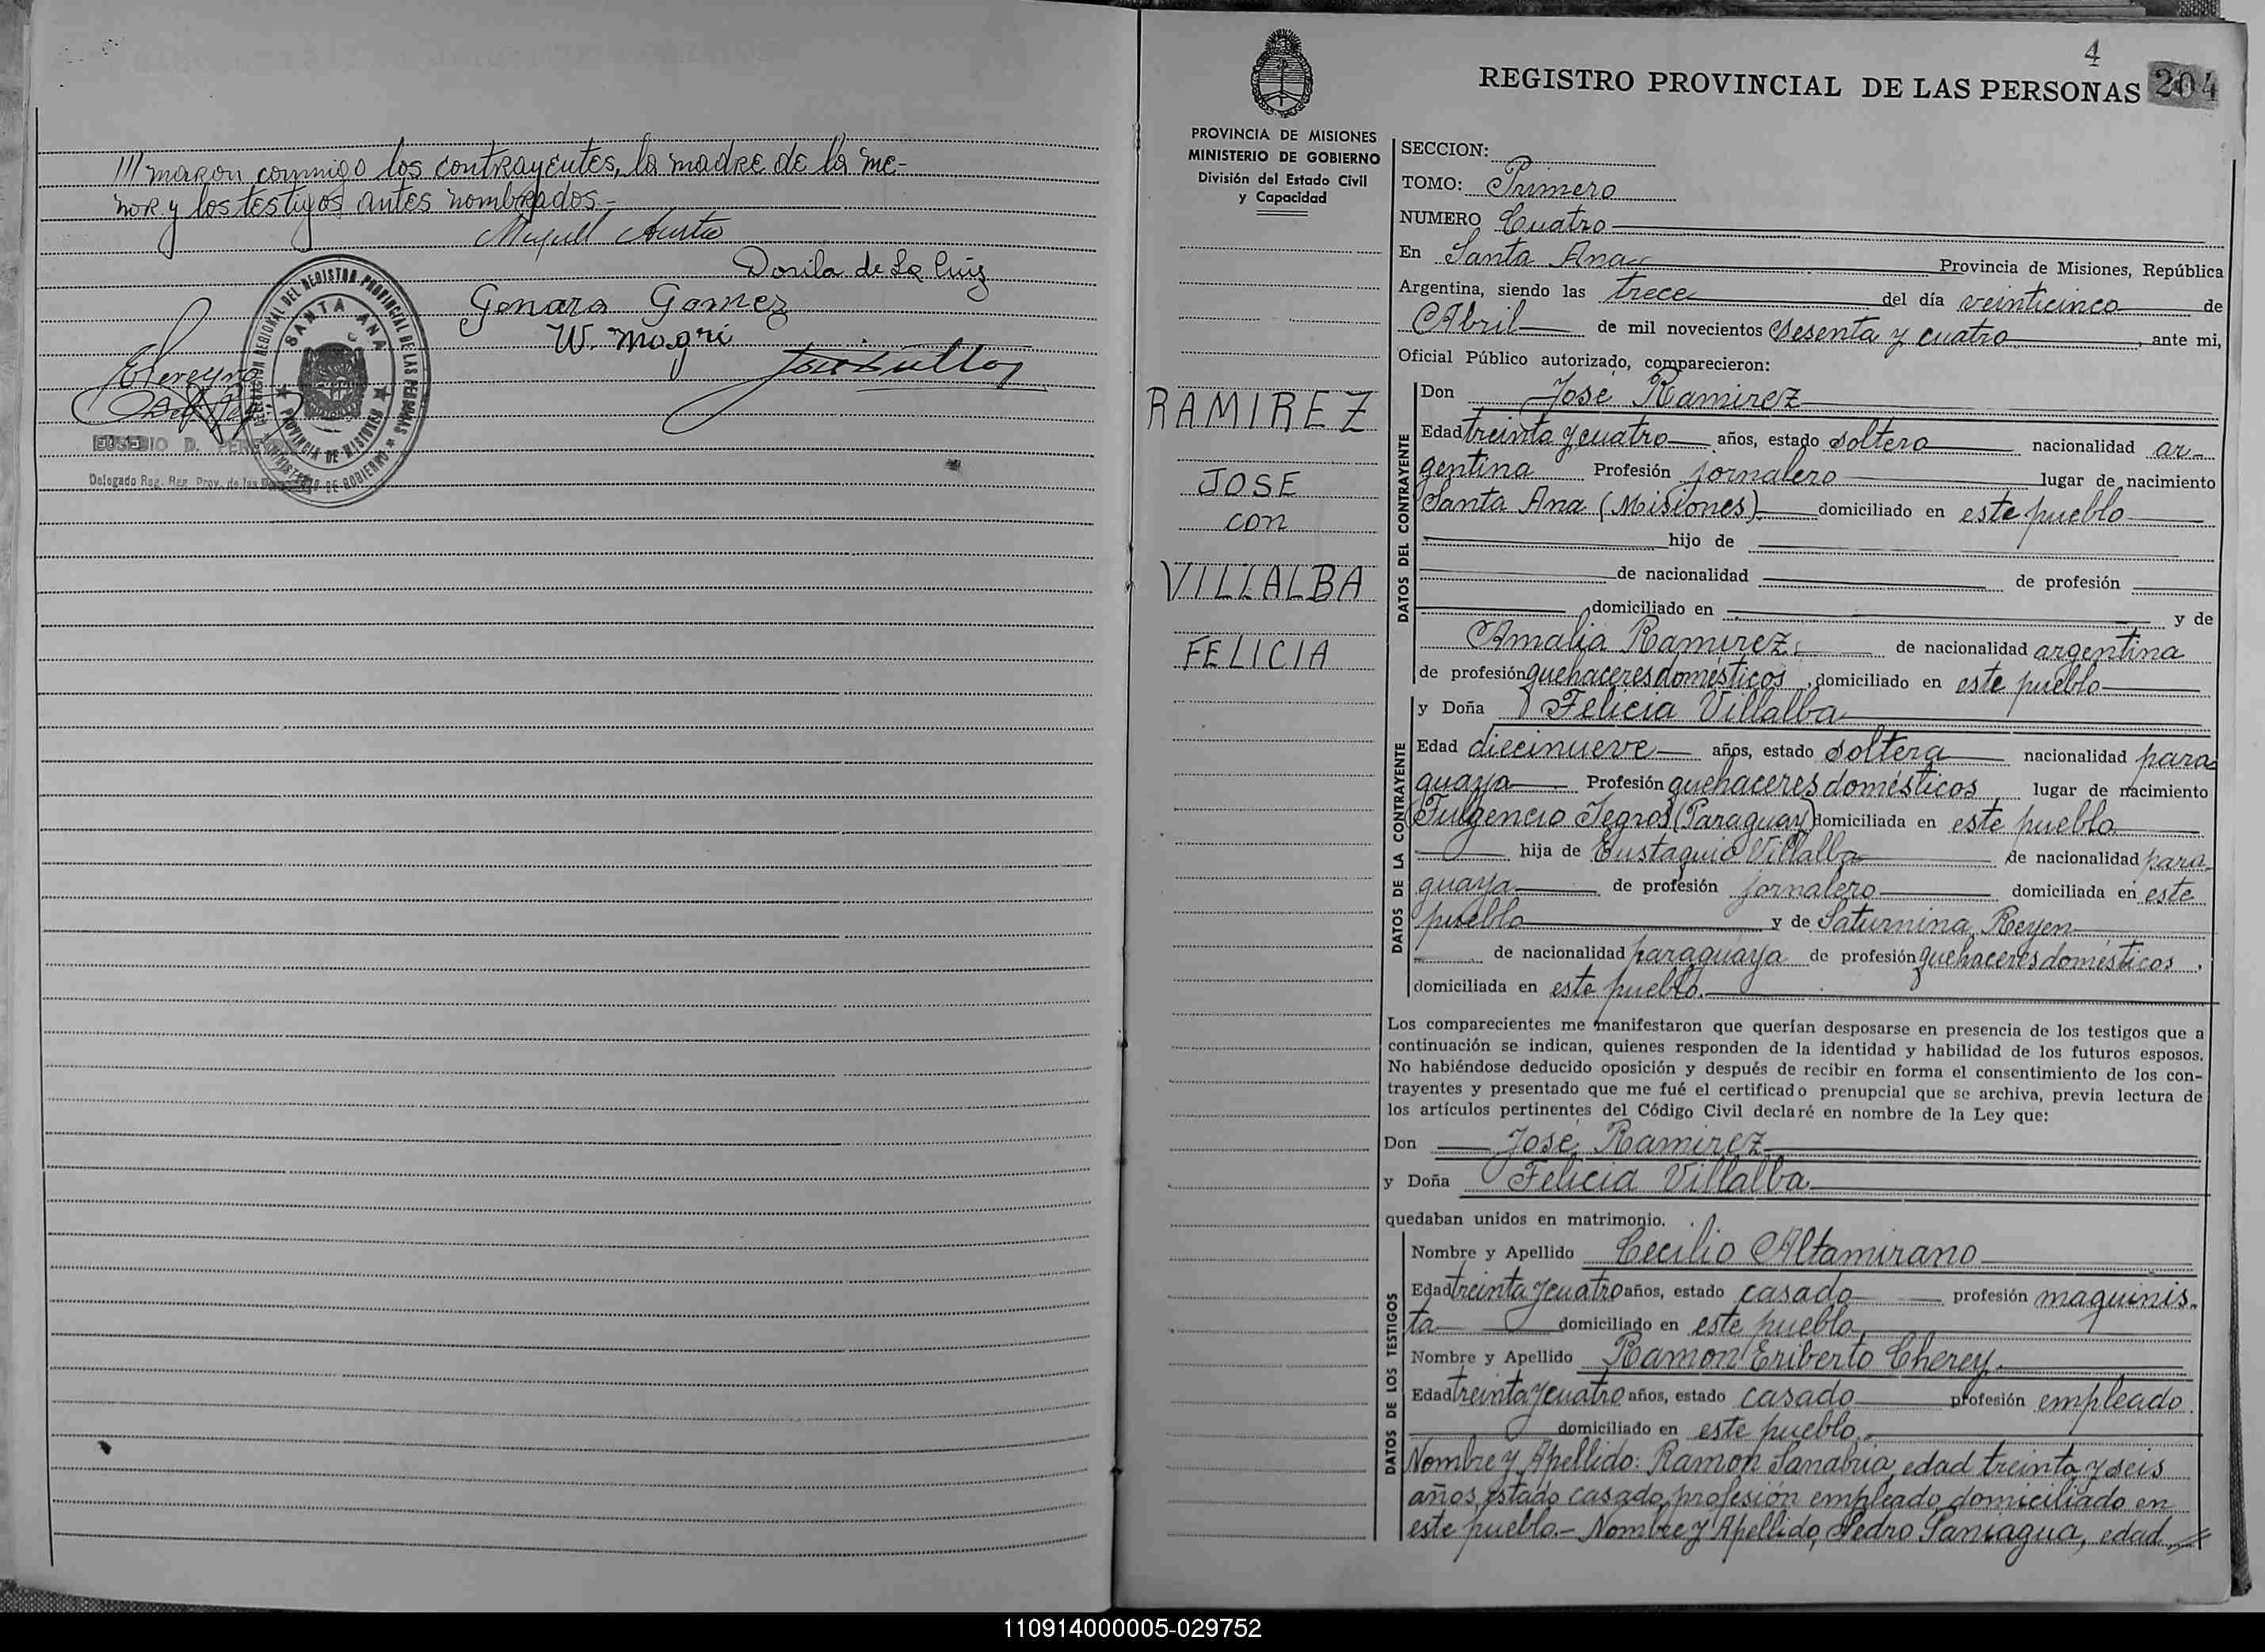 ///maron conmigo los contrayentes, la madre de la me-
nor y los testigos antes nombrados.-
Dorila de La Cruz
Genara Gomez
W. Magri
DELEGACION REGIONAL DEL REGISTRO PROVINCIAL DE LAS PERSONAS
SANTA ANA
PROVINCIA DE MISIONES
MINISTERIO DE GOBIERNO
EUSEBIO D.
Delegado Reg. Reg. Prov. de las
4
REGISTRO PROVINCIAL DE LAS PERSONAS 204
PROVINCIA DE MISIONES
MINISTERIO DE GOBIERNO
División del Estado Civil
y Capacidad
RAMIREZ
JOSE
con
VILLALBA
FELICIA
SECCION:
TOMO: Primero
NUMERO Cuatro
En Santa Ana Provincia de Misiones, República
Argentina, siendo las trece del día veinticinco de
Abril de mil novecientos sesenta y cuatro, ante mi,
Oficial Público autorizado, comparecieron:
DATOS DEL CONTRAYENTE
Don José Ramirez
Edad treinta y cuatro años, estado soltero nacionalidad ar-
gentina Profesión jornalero lugar de nacimiento
Santa Ana (Misiones) domiciliado en este pueblo
hijo de
de nacionalidad de profesión
domiciliado en y de
Amalia Ramirez de nacionalidad argentina
de profesión quehaceres domésticos, domiciliado en este pueblo
DATOS DE LA CONTRAYENTE
y Doña Felicia Villalba
Edad diecinueve años, estado soltera nacionalidad para-
guaya Profesión quehaceres domésticos lugar de nacimiento
Fulgencio Yegros (Paraguay) domiciliada en este pueblo
hija de Eustaquio Villalba de nacionalidad para-
guaya de profesión jornalero domiciliada en este
pueblo y de Saturnina Reyen
de nacionalidad paraguaya de profesión quehaceres domésticos,
domiciliada en este pueblo.
Los comparecientes me manifestaron que querían desposarse en presencia de los testigos que a
continuación se indican, quienes responden de la identidad y habilidad de los futuros esposos.
No habiéndose deducido oposición y después de recibir en forma el consentimiento de los con-
trayentes y presentado que me fué el certificado prenupcial que se archiva, previa lectura de
los artículos pertinentes del Código Civil declaré en nombre de la Ley que:
Don José Ramirez
y Doña Felicia Villalba
quedaban unidos en matrimonio.
DATOS DE LOS TESTIGOS
Nombre y Apellido Cecilio Altamirano
Edad treinta y cuatro años, estado casado profesión maquinis-
ta domiciliado en este pueblo
Nombre y Apellido Ramon Eriberto Cherey
Edad treinta y cuatro años, estado casado profesión empleado
domiciliado en este pueblo.
Nombre y Apellido: Ramon Sanabria, edad treinta y seis
años, estado casado, profesión empleado, domiciliado en
este pueblo.- Nombre y Apellido, Pedro Paniagua, edad //
110914000005-029752